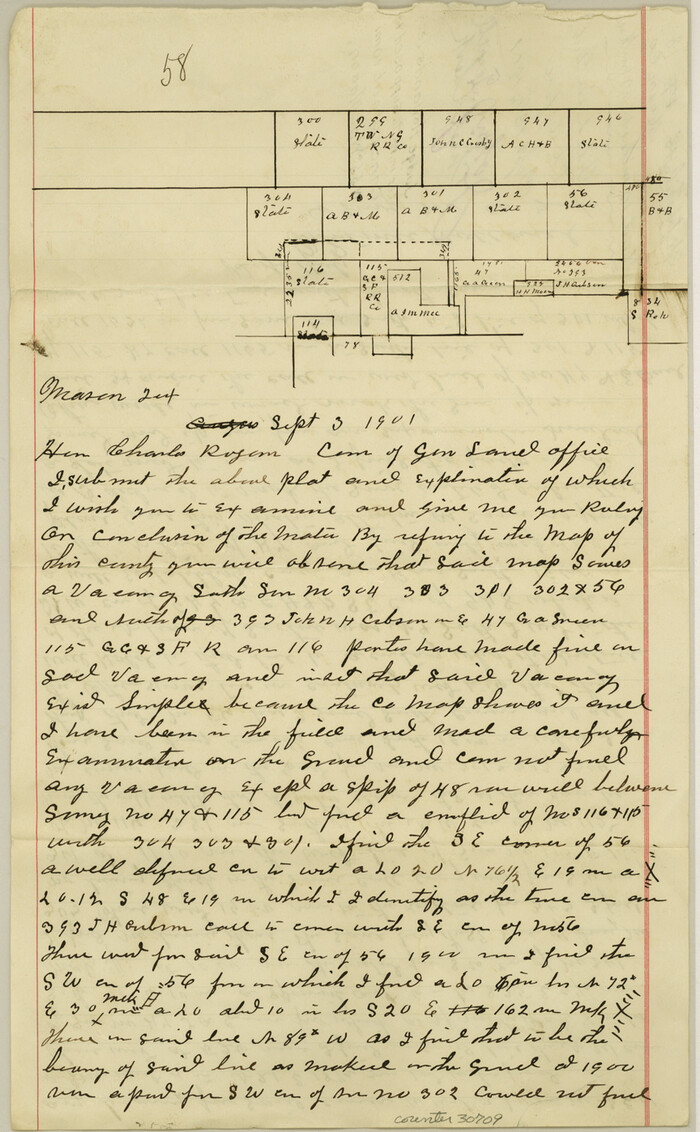 58
300 299 948 947 946
State TW NG John C Crosby A C H & B State
RR Co
480
304 303 301 302 56 55
State A B & M A B & M State State B & B
116 115 512 47 No 393
State GC & SF RR Co J H Gibson
2235
114 34
State 78
Mason Tex
Sept 3 1901
Hon Charles Rogan Com of Gen Land office
I submit the above plat and Explination of which
I wish you to Examine and give me your Ruling
or Conclusion of the Matter By refering to the Map of
this county you will observe that said map Shows
a Vacancy South Sur No 304 303 301 302 & 56
and North of 393 John H Gibson on E 47 G A Green
115 GC & S F R 116 parties have Made file on
said Vacancy and insist that said Vacancy
Exist Simple because the Co Map Shows it and
I have been in the field and Mad a carefully
Examination on the Ground and can not find
any Vacancy Except a Strip of 48 vrs wide between
Survey no 47 & 115 but find a conflict of Nos 116 & 115
with 304 303 & 301. I find the S E corner of 56
a well defined cor to wit a L O 20 N 76½ E 19 vrs a
L O - 12 S 48 E 19 vrs which I Identify as the true cor
393 J H Gibson call to corner with S E cor of No 56
Thence west from said S E cor of 56 1900 vrs I find the
S W cor of 56 from which I find a L O in brs N 72°
E 30 vrs mkd a L O 10 in brs S 20 E 162 vrs Mkd X
Thence in said line N 89° W as I find that to be the
bearing of said line as marked on the Ground at 1900
vrs a point for S W cor of sur no 302 Could not find
counter 30709